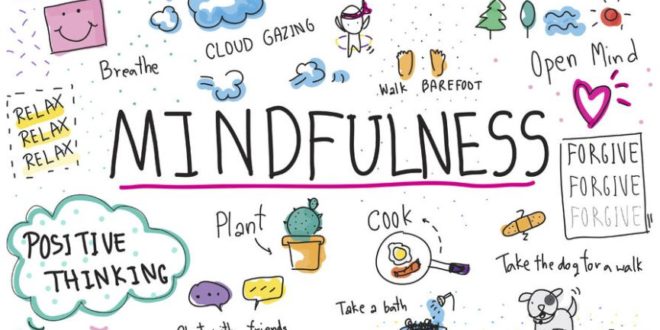 Breathe
CLOUD GAZING
Walk BAREFOOT
Open Mind
RELAX
RELAX
RELAX
MINDFULNESS
FORGIVE
FORGIVE
FORGIVE
POSITIVE
THINKING
Plant
COOK
Take the dog for a walk
Take a bath
with friends